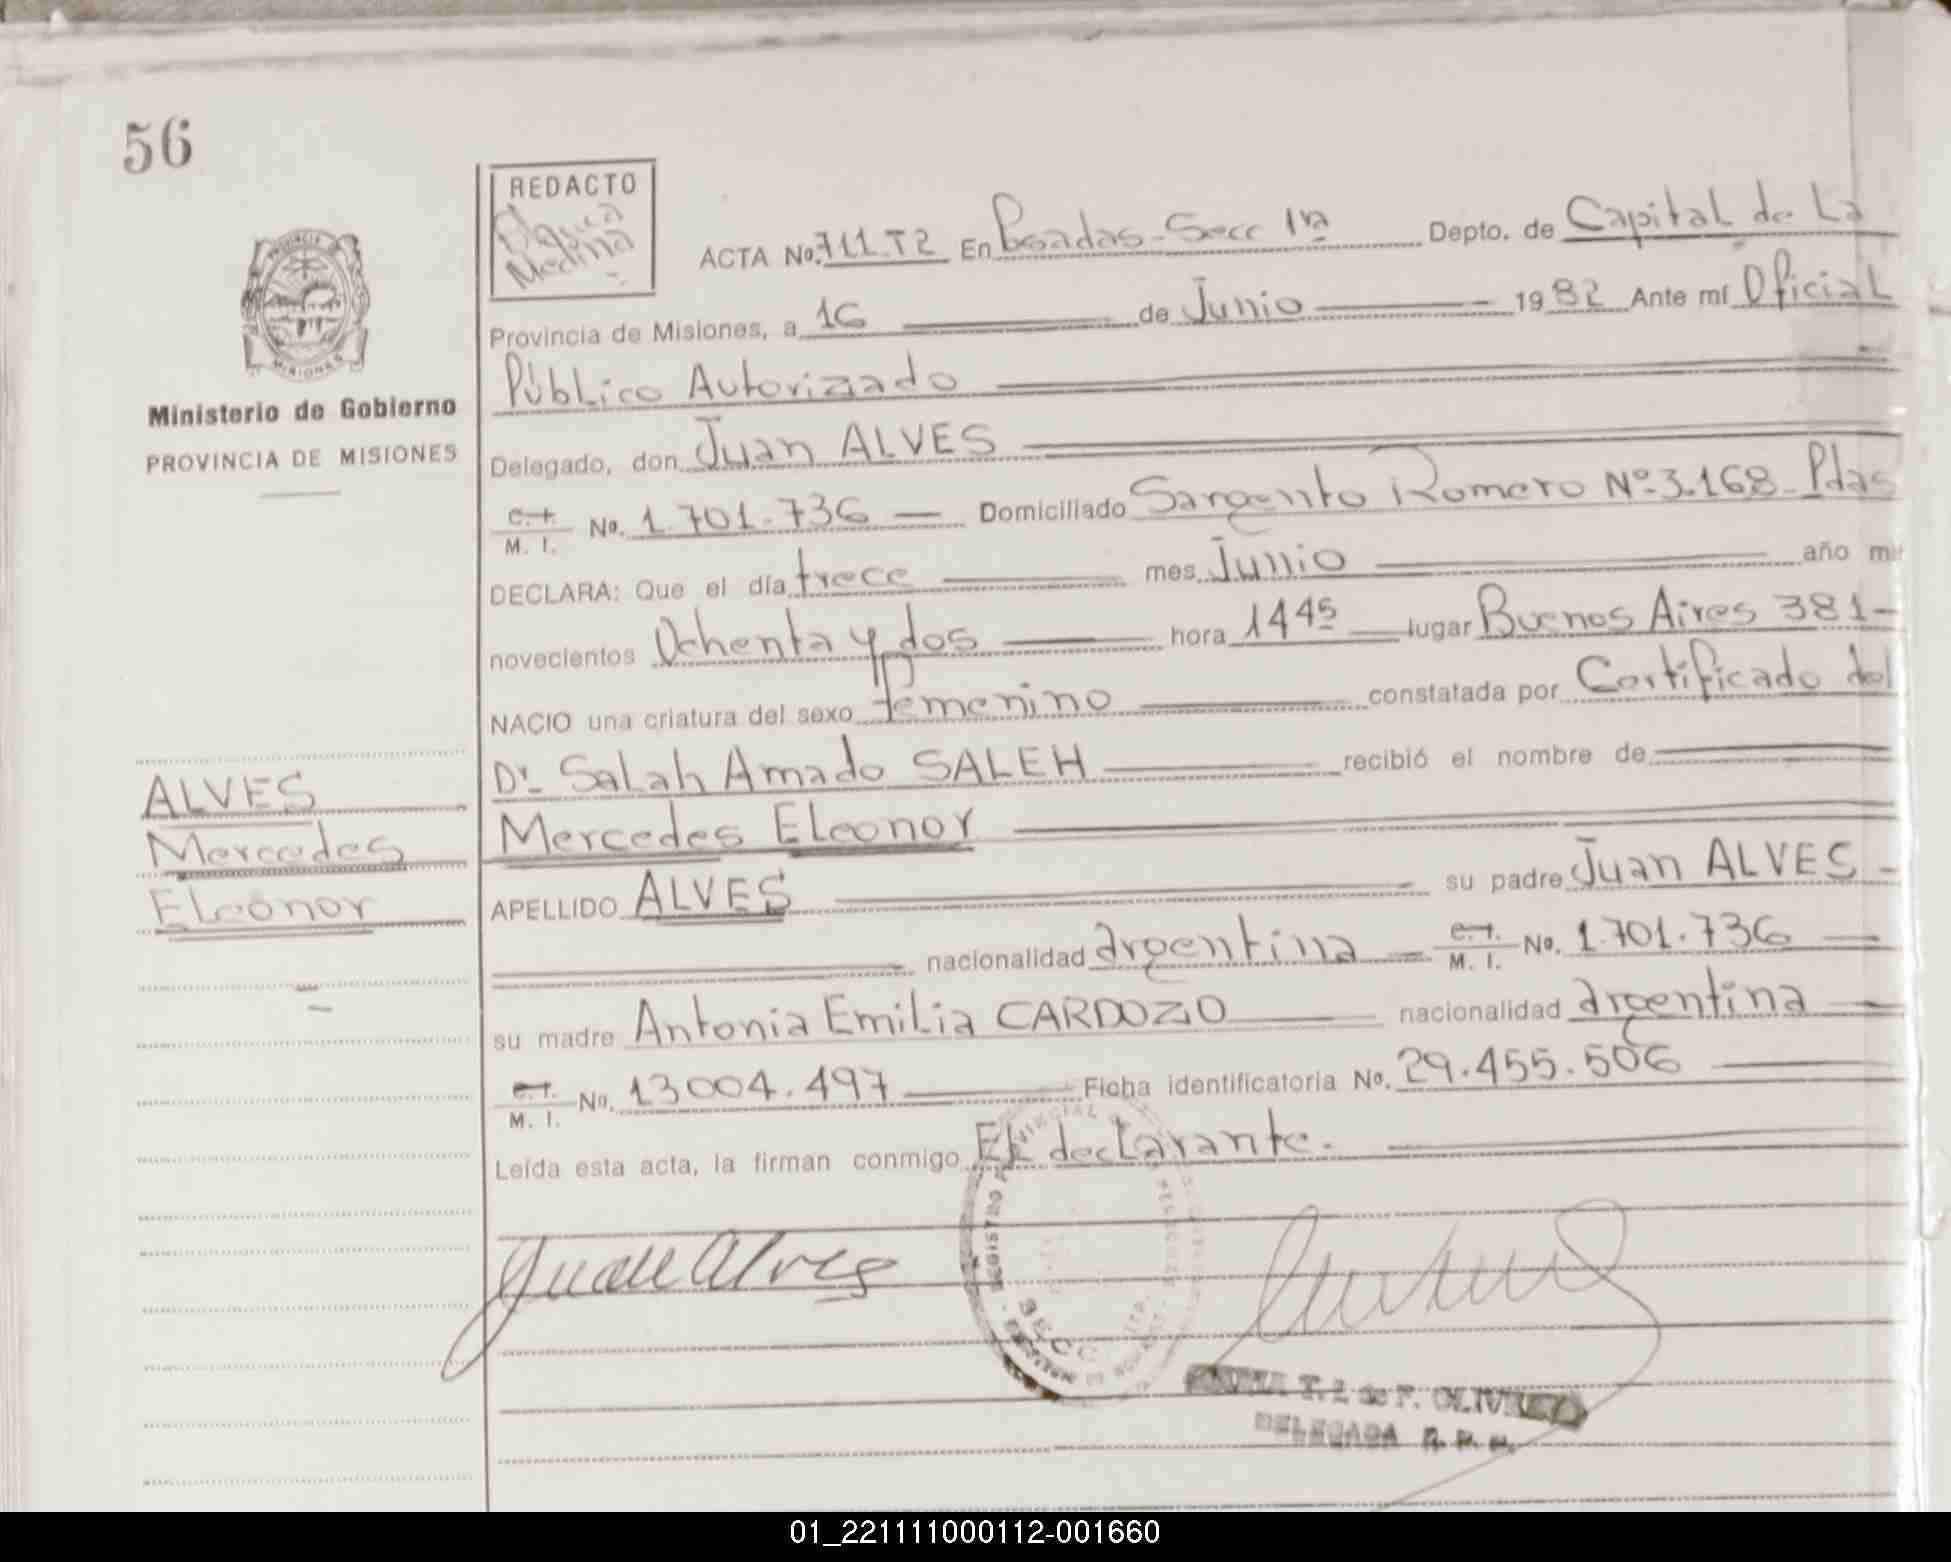 56
REDACTO
Medina
ACTA No. 711.T2 En Posadas - Secc 1ra Depto. de Capital de La
Provincia de Misiones, a 16 de Junio 1982 Ante mí Oficial
Público Autorizado
MISIONES
Ministerio de Gobierno
PROVINCIA DE MISIONES
Delegado, don Juan ALVES
C. I. M. I. No. 1.701.736 — Domiciliado Sargento Romero Nº 3.168 Pdas
DECLARA: Que el día trece mes Junio año mil
novecientos Ochenta y dos hora 14 45 lugar Buenos Aires 381-
NACIO una criatura del sexo femenino constatada por Certificado del
Dr Salah Amado SALEH recibió el nombre de
ALVES
Mercedes
Eleonor
Mercedes Eleonor
APELLIDO ALVES su padre Juan ALVES -
nacionalidad argentina — C. I. M. I. No. 1.701.736
su madre Antonia Emilia CARDOZO nacionalidad argentina
C. I. M. I. No. 13004.497 Ficha identificatoria No. 29.455.506
Leída esta acta, la firman conmigo El declarante.
Juan Alves
REGISTRO PROVINCIAL
SECC
T. L de P. OLIVE
DELEGADA R. P. P.
01_221111000112-001660